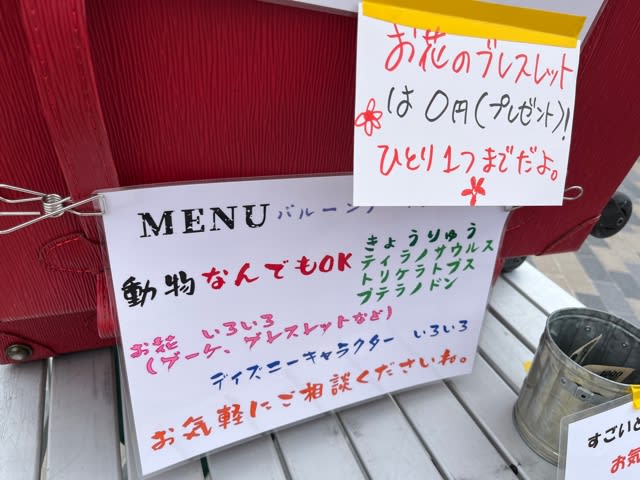 お花のブレスレット
は0円(プレゼント)!
ひとり1つまでだよ。
MENU バルーンアー
動物なんでもOK
きょうりゅう
ティラノサウルス
トリケラトプス
プテラノドン
お花 いろいろ
(ブーケ、ブレスレットなど)
ディズニーキャラクター いろいろ
お気軽にご相談くださいね。
すごいと
お気